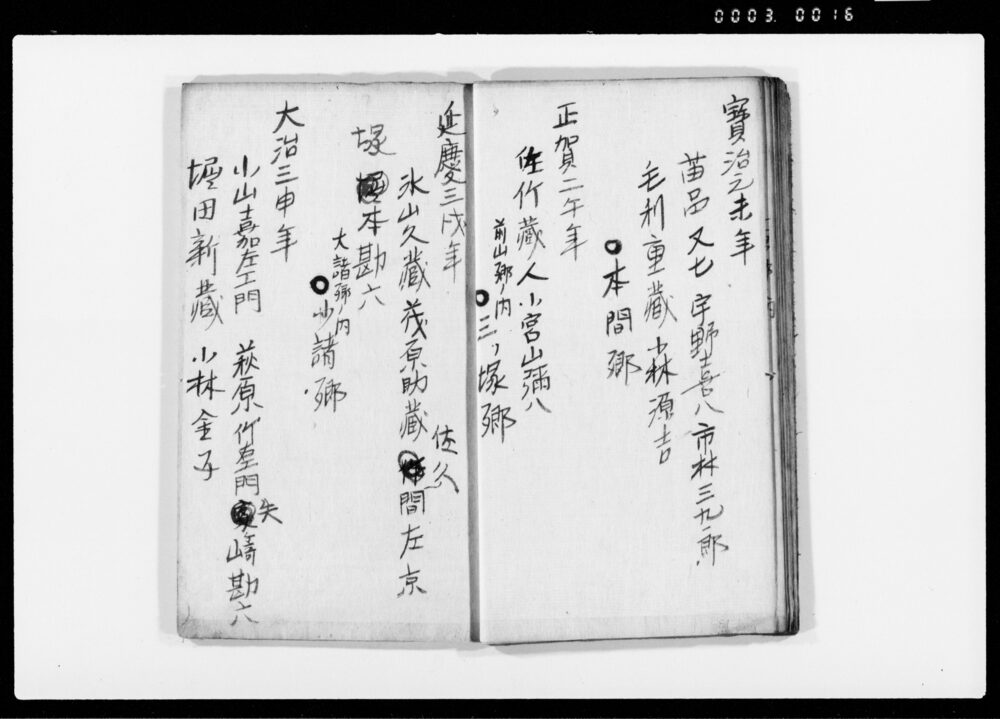 0003.0016
寶治元未年
苗品又七 宇野喜八 市林三九郎
毛利重藏 小林源吉
○本間郷
正賀二午年
佐竹藏人 小宮山彌八
前山郷ノ内
○三ノ塚郷
延慶三戌年
氷山久藏 茂原助藏 佐久間左京
塚本勘六
大諸郷ノ内
○小諸郷
大治三申年
小山嘉左エ門 萩原竹左エ門 矢崎勘六
堀田新藏 小林金子